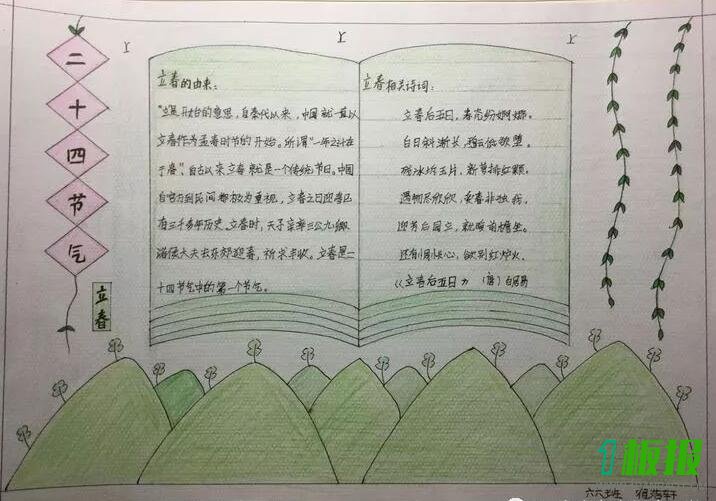 二十四节气
立春
立春的由来：
"立是开始的意思，自秦代以来，中国就一直以
立春作为孟春时节的开始。所谓"一年之计在
于春"，自古以来立春就是一个传统节日。中国
自官方到民间都极为重视，立春之日迎春已
有三千多年历史。立春时，天子亲率三公九卿、
诸侯大夫去东郊迎春，祈求丰收。立春是二
十四节气中的第一个节气。
立春相关诗词：
立春后五日，春态纷婀娜。
白日斜渐长，碧云低欲堕。
残冰坼玉片，新萼排红颗。
遇物尽欣欣，爱春非独我。
迎芳后园立，就暖前檐坐。
还有惆怅心，欲别红炉火。
《立春后五日》 （唐）白居易
1板报
六六班